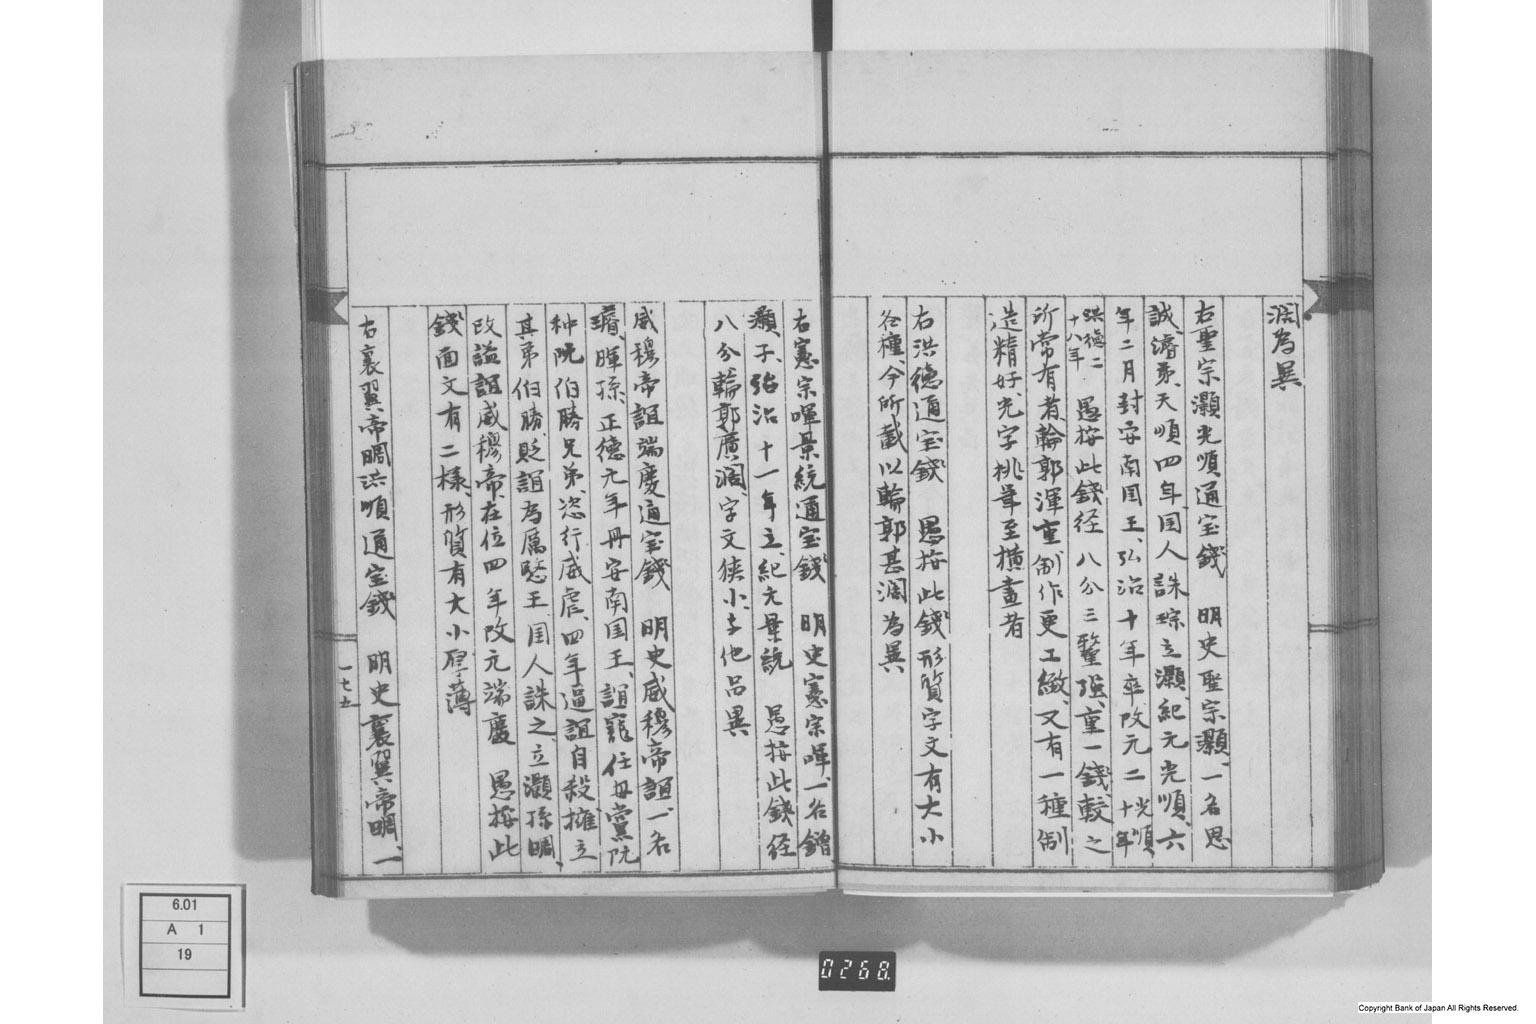 濶為異
右聖宗灝光順通宝錢　明史聖宗灝、一名思
誠、濬弟、天順四年、国人誅琮立灝、紀元光順、六
年二月封安南国王、弘治十年卒、改元二 光順十年
洪德二十八年　愚按此錢径八分三釐强、重一錢、較之
所常有者輪郭渾重、制作更工緻、又有一種制
造精好、光字挑筆至橫畫者
右洪德通宝錢　愚按此錢形質字文有大小
各種、今所載以輪郭甚濶為異
右憲宗暉景統通宝錢　明史憲宗暉、一名鏳
灝子、弘治十一年立、紀元景統　愚按此錢径
八分、輪郭廣濶、字文狹小、与他品異
威穆帝誼端慶通宝錢　明史威穆帝誼、一名
璿、暉孫、正德元年冊安南国王、誼寵任母黨阮
种阮伯勝兄弟、恣行威虐、四年逼誼自殺、擁立
其弟伯勝、貶誼為厲愍王、国人誅之、立灝孫晭、
改謚誼威穆帝、在位四年改元端慶　愚按此
錢面文有二樣、形質有大小厚薄
右襄翼帝晭洪順通宝錢　明史襄翼帝晭、一
一七五
6.01
A 1
19
0268
Copyright Bank of Japan All Rights Reserved.